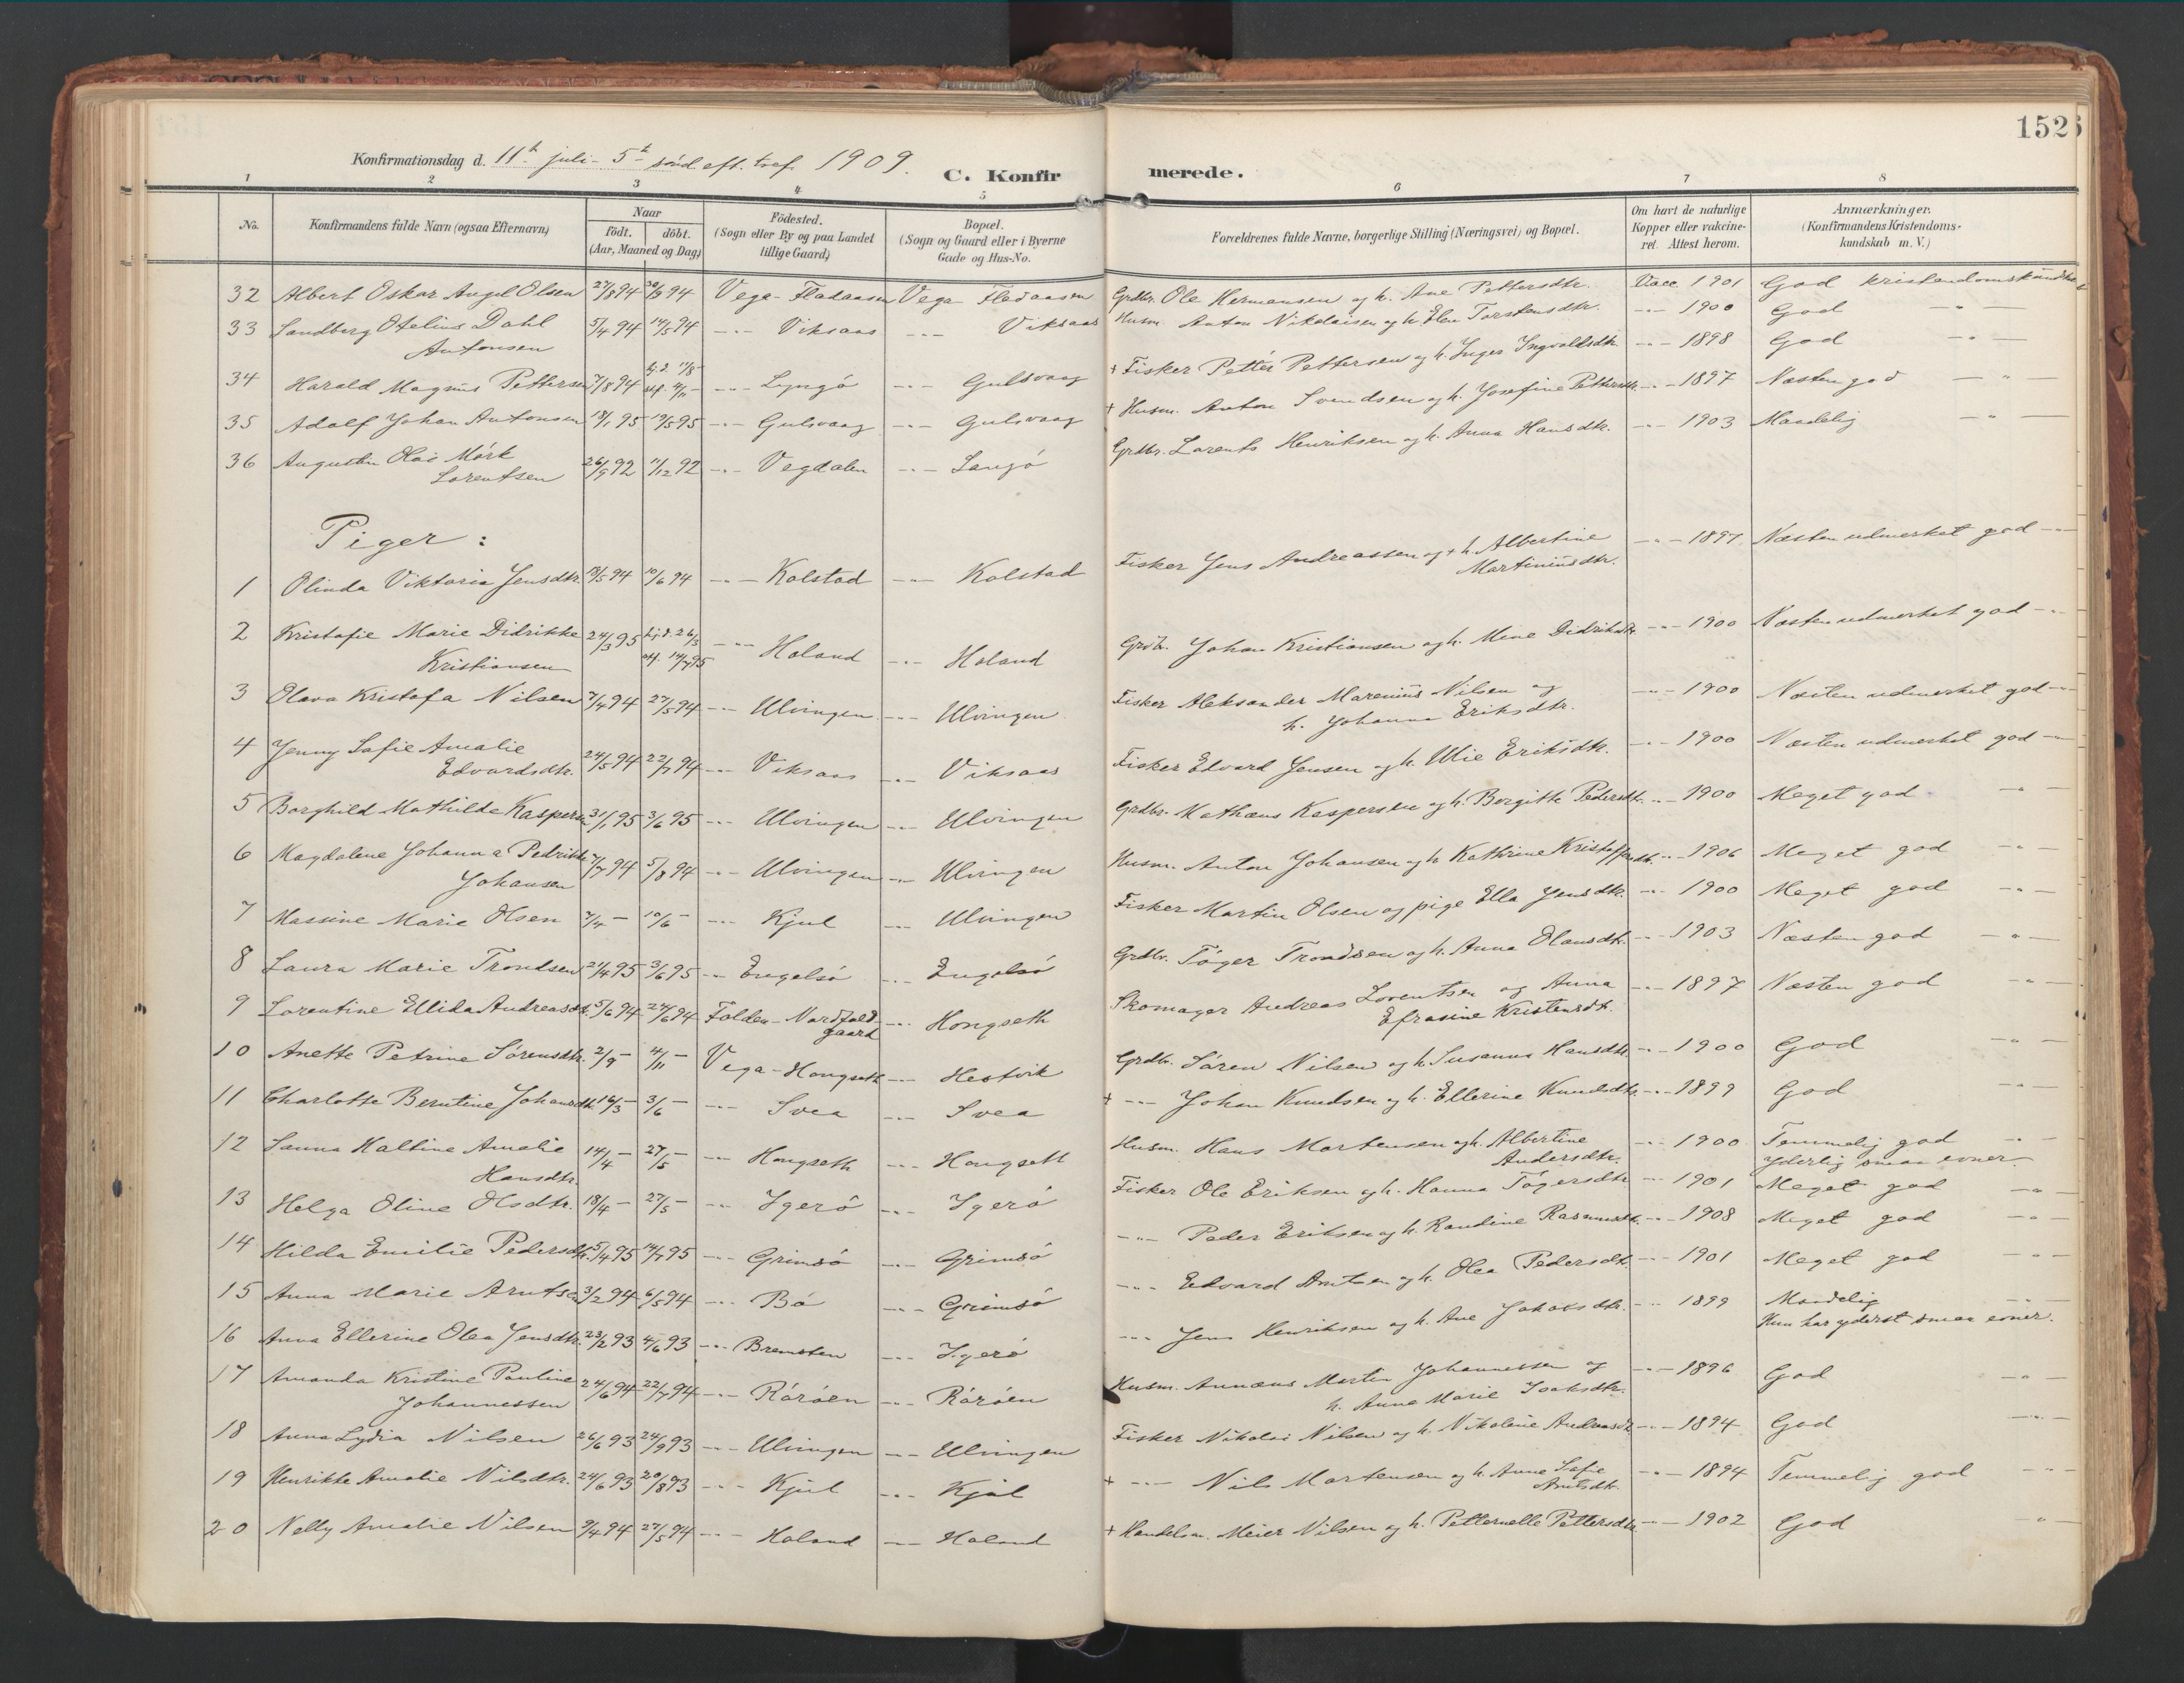 152
Konfirmationsdag d. 11th juli - 5te sönd. eft. tref. 1909.
C. Konfirmerede.
1 2 3 4 5 6 7 8
No. Konfirmandens fulde Navn (ogsaa Efternavn) Naar födt. döbt. (Aar, Maaned og Dag) Födested. (Sogn eller By og paa Landet tillige Gaard) Bopæl. (Sogn og Gaard eller i Byerne Gade og Hus-No. Forældrenes fulde Navne, borgerlige Stilling (Næringsvei) og Bopæl. Om havt de naturlige Kopper eller vakcineret. Attest herom. Anmærkninger. (Konfirmandens Kristendomskundskab m. V.)
32 Albert Oskar Angel Olsen 27/8 94 30/9 94 Vega - Fladaasen Vega Fladaasen Grdbr. Ole Hermansen og h. Ane Pettersdtr. Vacc. 1901 God kristendomskundskab
33 Sandberg Otelius Dahl 5/4 94 14/5 94 -"- Viksaas -"- Viksaas Husm. Anton Nikolaisen og h. Elen Torstensdtr. -"- 1900 God -"-
Antonsen
34 Harald Magnus Pettersen 7/8 94 hj.d. 11/8 stf. 4/11 -"- Lyngö -"- Gulsvaag + Fisker Petter Pettersen og h. Inger Ingvaldsdtr. -"- 1898 God -"-
35 Adolf Johan Antonsen 18/1 95 19/5 95 -"- Gulsvaag -"- Gulsvaag + Husm. Anton Svendsen og h. Josefine Pettersdtr. -"- 1897 Næsten god -"-
36 Augustin Olai Mörk 26/9 92 11/12 92 -"- Vegdalen -"- Langö Grdbr. Lorents Henriksen og h. Anna Hansdtr. -"- 1903 Maadelig -"-
Lorentsen
Piger :
1 Olinda Viktoria Jensdtr. 18/5 94 10/6 94 -"- Kolstad -"- Kolstad Fisker Jens Andreassen og + h. Albertine -"- 1897 Næsten udmerket god -"-
Martinusdtr.
2 Kristofie Marie Didrikke 24/3 95 hj.d. 26/3 stf. 14/7 95 -"- Holand -"- Holand Grdb. Johan Kristiansen og h. Mine Didriksdtr. -"- 1900 Næsten udmerket god -"-
Kristiansen
3 Olava Kristofa Nilsen 7/4 94 27/5 94 -"- Ulvingen -"- Ulvingen Fisker Aleksander Marenius Nilsen og -"- 1900 Næsten udmerket god -"-
h. Johanna Eriksdtr.
4 Jenny Sofie Amalie 24/5 94 22/7 94 -"- Viksaas -"- Viksaas Fisker Edvard Jensen og h. Ulie Eriksdtr. -"- 1900 Næsten udmerket god -"-
Edvardsdtr.
5 Borghild Mathilde Kaspersen 31/1 95 3/6 95 -"- Ulvingen -"- Ulvingen Grdbr. Mathæus Kaspersen og h. Bergitte Pedersdtr. -"- 1900 Meget god -"-
6 Magdalene Johanna Pedrikke 7/7 94 5/8 94 -"- Ulvingen -"- Ulvingen Husm. Anton Johansen og h. Kathrine Kristoffersdtr. -"- 1906 Meget god -"-
Johansen
7 Massine Marie Olsen 7/4 - 10/6 - -"- Kjul -"- Ulvingen Fisker Martin Olsen og pige Ella Jensdtr. -"- 1900 Meget god -"-
8 Laura Marie Trondsen 21/4 95 3/6 95 -"- Engelsö -"- Engelsö Grdbr. Töger Trondsen og h. Anna Olausdtr. -"- 1903 Næsten god -"-
9 Lorentine Ellida Andreasdtr. 5/6 94 24/6 94 Folden - Nordfold -"- Hongseth Skomager Andreas Lorentsen og Anna -"- 1897 Næsten god -"-
gaard Efrasine Kristensdt.
10 Anette Petrine Sörensdtr. 2/9 - 4/11 - Vega - Hongseth -"- Hestvik Grdbr. Sören Nilsen og h. Susanna Hansdtr. -"- 1900 God -"-
11 Charlotte Berntine Johansdtr. 16/3 - 3/6 - -"- Svea -"- Svea + -"- Johan Knudsen og h. Ellerine Knudsdtr. -"- 1899 God
12 Sanna Haltine Amalie 14/4 - 27/5 - -"- Hongseth -"- Hongseth Husm. Hans Mortensen og h. Albertine -"- 1900 Temmelig god -"-
Hansdtr. Andersdtr. Yderlig smaa evner.
13 Helga Oline Olsdtr. 18/4 - 27/5 - -"- Igerö -"- Igerö Fisker Ole Eriksen og h. Hanna Tögersdtr. -"- 1901 Meget god -"-
14 Hilda Emilie Pedersdtr. 15/4 95 14/7 95 -"- Grimsö -"- Grimsö -"- Peder Eriksen og h. Randine Rasmusdtr. -"- 1908 Meget god -"-
15 Anna Marie Arntsen 3/2 94 6/5 94 -"- Bö -"- Grimsö -"- Edvard Arntsen og h. Olea Pedersdtr. -"- 1901 Meget god -"-
16 Anna Ellerine Olea Jensdtr. 23/2 93 4/6 93 -"- Bremsten -"- Igerö -"- Jens Henriksen og h. Ane Jakobsdtr. -"- 1899 Maadelig -"-
Hun har yderst smaa evner.
17 Amanda Kristine Pauline 24/6 94 22/7 94 -"- Röröen -"- Röröen Husm. Annæus Martin Johannessen og -"- 1896 God -"-
Johannessen h. Anne Marie Isaksdtr.
18 Anna Lydia Nilsen 26/6 93 24/9 93 -"- Ulvingen -"- Ulvingen Fisker Nikolai Nilsen og h. Nikoline Andreasdtr. -"- 1894 God -"-
19 Henrikke Amalie Nilsdtr. 24/6 93 20/8 93 -"- Kjul -"- Kjöl + -"- Nils Mortensen og h. Anne Sofie -"- 1894 Temmelig god -"-
Arntsdtr.
20 Nelly Amalie Nilsen 9/4 94 27/5 94 -"- Holand -"- Holand + Handelsm. Meier Nilsen og h. Petternelle Pettersdtr. -"- 1902 God -"-